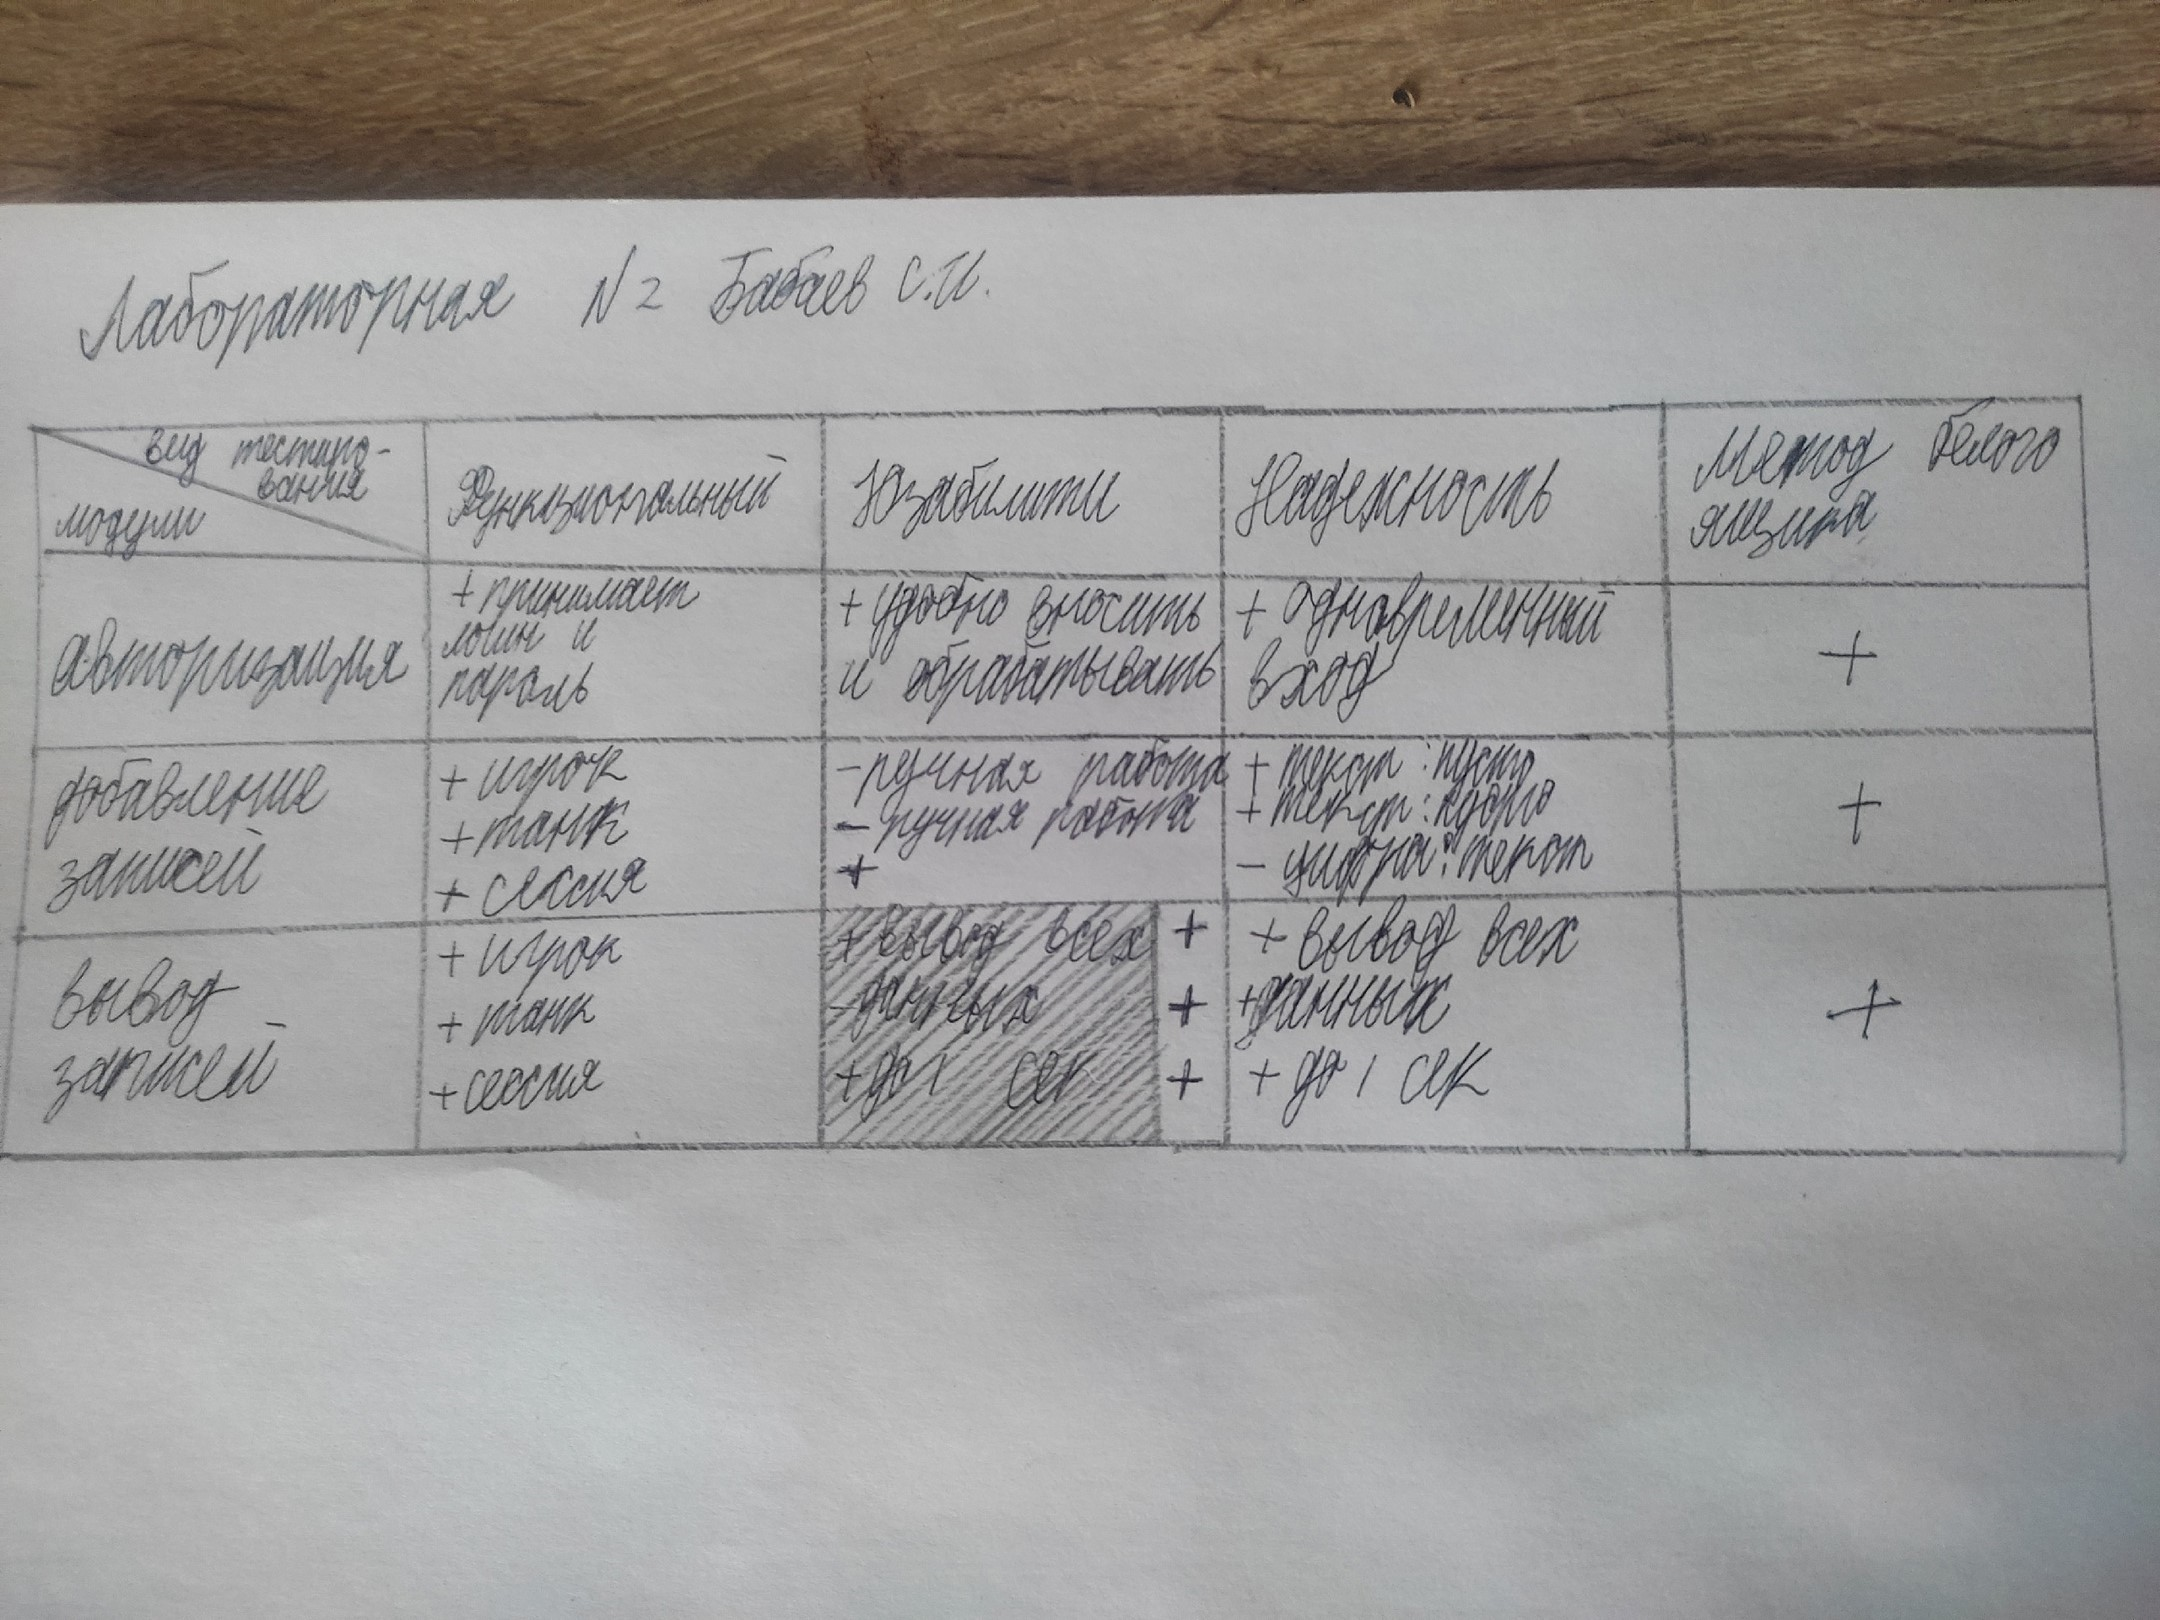 Лабораторная N2 Бабаев С.И.
вид тестиро-
вания
модули
Функциональный
Юзабилити
Надежность
Метод белого
ящика
авторизация
+ принимает
логин и
пароль
+ удобно вносить
и обрабатывать
+ одновременный
вход
+
добавление
записей
+ игрок
+ танк
+ сессия
- ручная работа
- ручная работа
+
+ текст : пусто
+ текст :
- цифра : текст
+
вывод
записей
+ игрок
+ танк
+ сессия
+ вывод всех +
- данных +
+ до 1 сек +
+ вывод всех
+ данных
+ до 1 сек
+